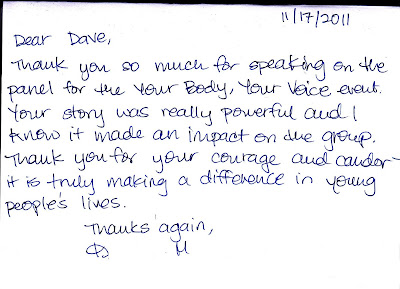 11/17/2011
Dear Dave,
Thank you so much for speaking on the
panel for the Your Body, Your Voice event.
Your story was really powerful and I
know it made an impact on the group.
Thank you for your courage and candor-
it is truly making a difference in young
people's lives.
Thanks again,
D M